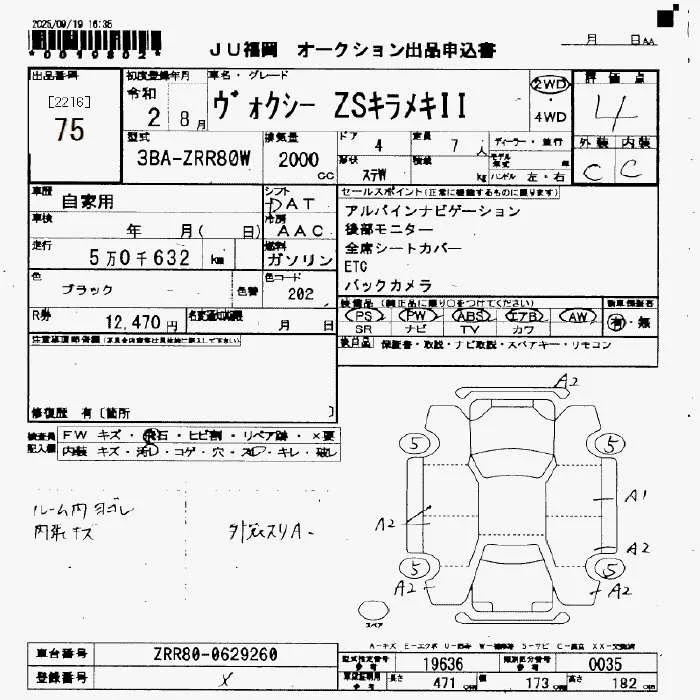 2025/09/19 16:35
*0019802*
JU福岡 オークション出品申込書
月 日 AA
出品番号
[2216]
75
初度登録年月
令和
2 8月
車名・グレード
ヴォクシー ZSキラメキII
2WD
・
4WD
評価点
4
外装 内装
C C
型式
3BA-ZRR80W
排気量
2000
cc
ドア 4
定員 7 人
ディーラー・並行
形状 ステW
積載 kg
モデル年式 年
ハンドル 左・右
車歴 自家用
シフト DAT
車検 年 月( 日)
冷房 AAC
走行 5万0千632 km
燃料 ガソリン
色 ブラック
色替
色コード 202
R券 12,470円
名変通知期限 月 日
セールスポイント(正常に機能するものに限ります)
アルパインナビゲーション
後部モニター
全席シートカバー
ETC
バックカメラ
装備品 (純正品に限り〇をつけてください)
PS PW ABS エアB AW
SR ナビ TV カワ
新車保証書
有・無
後日品 保証書・取説・ナビ取説・スペアキー・リモコン
修復歴 有〔箇所 〕
検査員
記入欄
FW キズ・飛石・ヒビ割・リペア跡・×要
内装 キズ・汚レ・コゲ・穴・スレ・キレ・破レ
ルーム内ヨゴレ
内張キズ
外装スリA-
A2
5 5
A1
A2
A2
5 5
A2 A2
スペア
車台番号 ZRR80-0629260
登録番号
型式指定番号 19636
類別区分番号 0035
長さ 471 幅 173 高さ 182